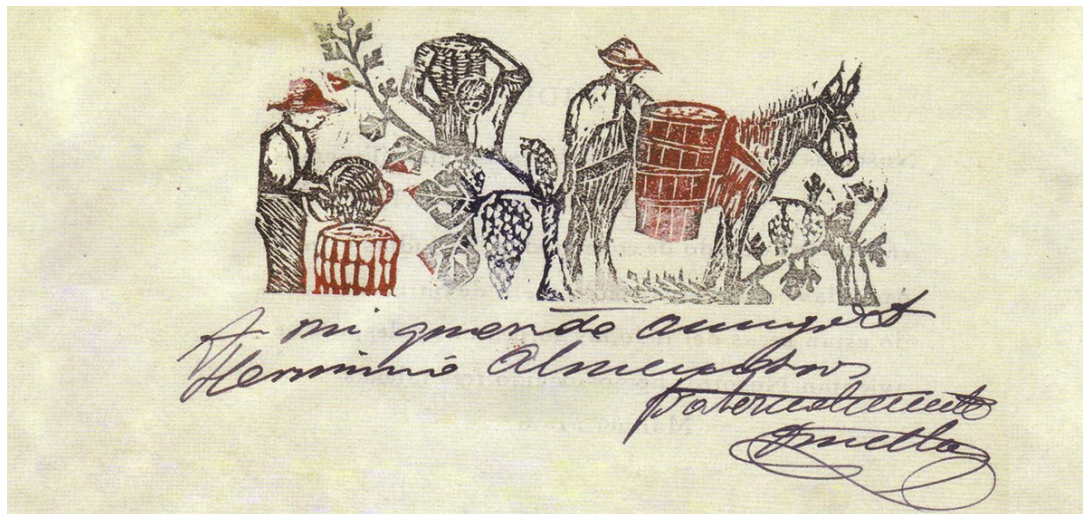 A mi querido amigo D
Herminio Almendros
fraternalmente